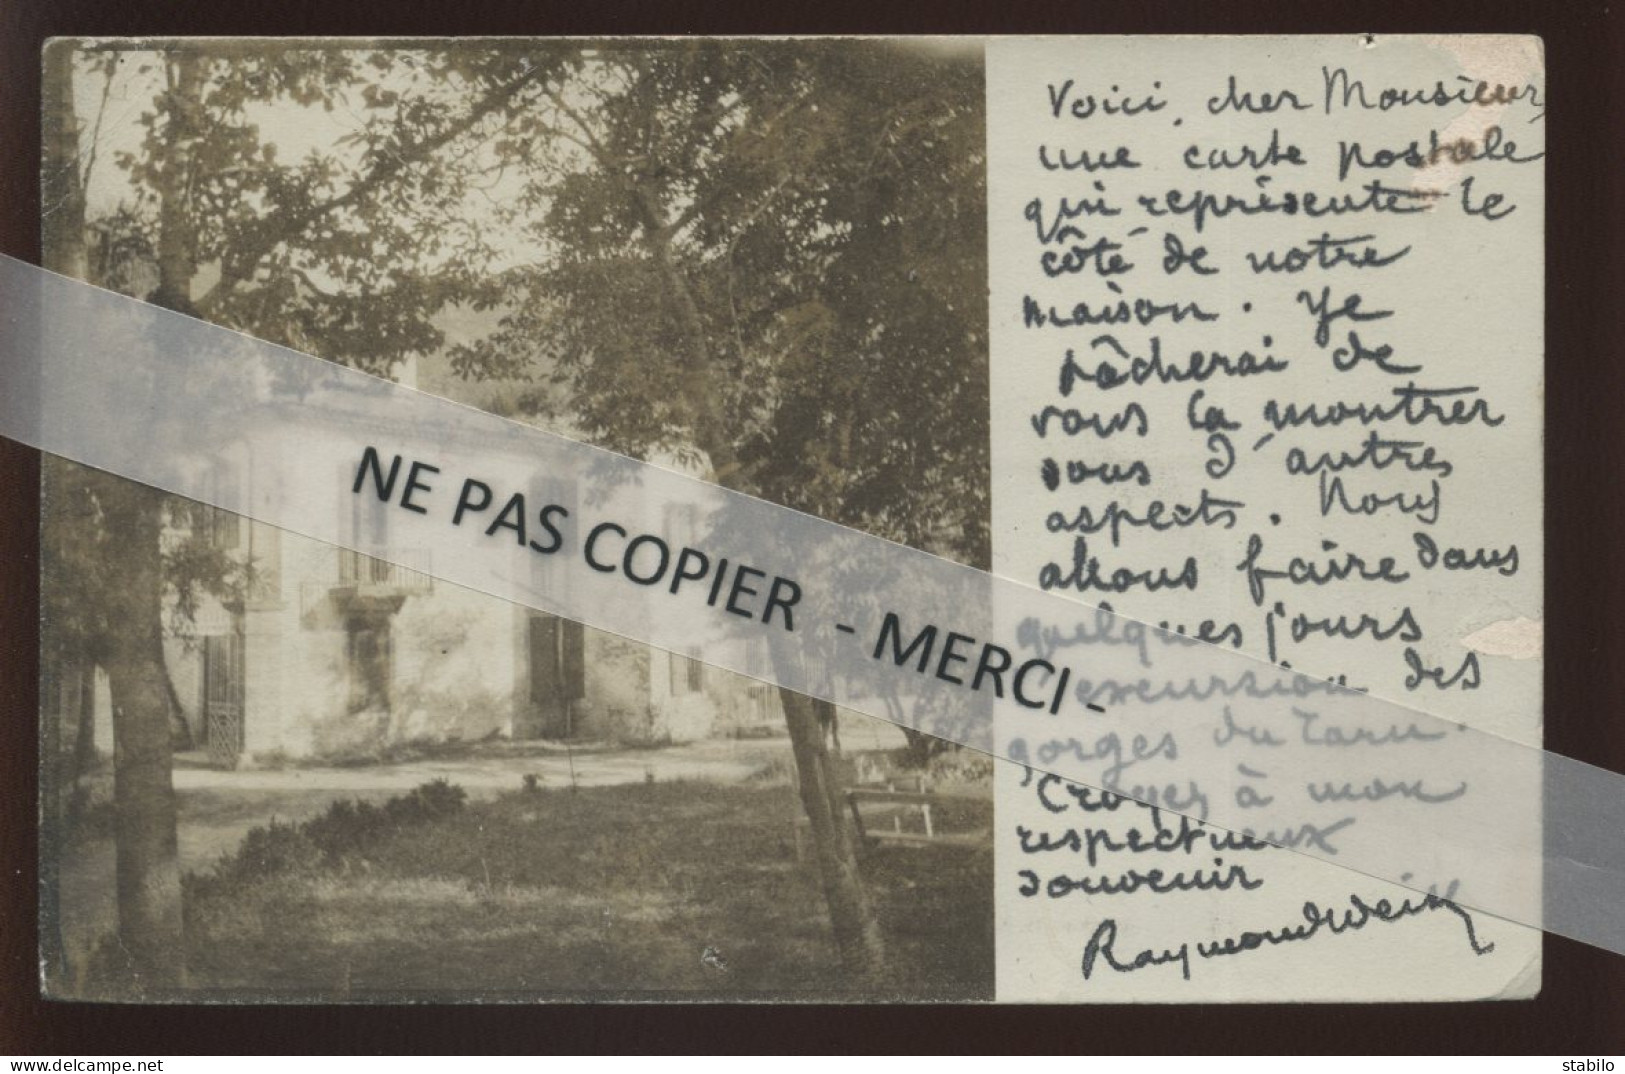 Voici, cher Monsieur,
une carte postale
qui représente le
côté de notre
maison. Je
tâcherai de
vous la montrer
sous d'autres
aspects. Nous
allons faire dans
quelques jours
l'excursion des
gorges du Tarn.
Croyez à mon
respectueux
souvenir
Raymond Weill
NE PAS COPIER - MERCI -
delcampe.net
stabilo